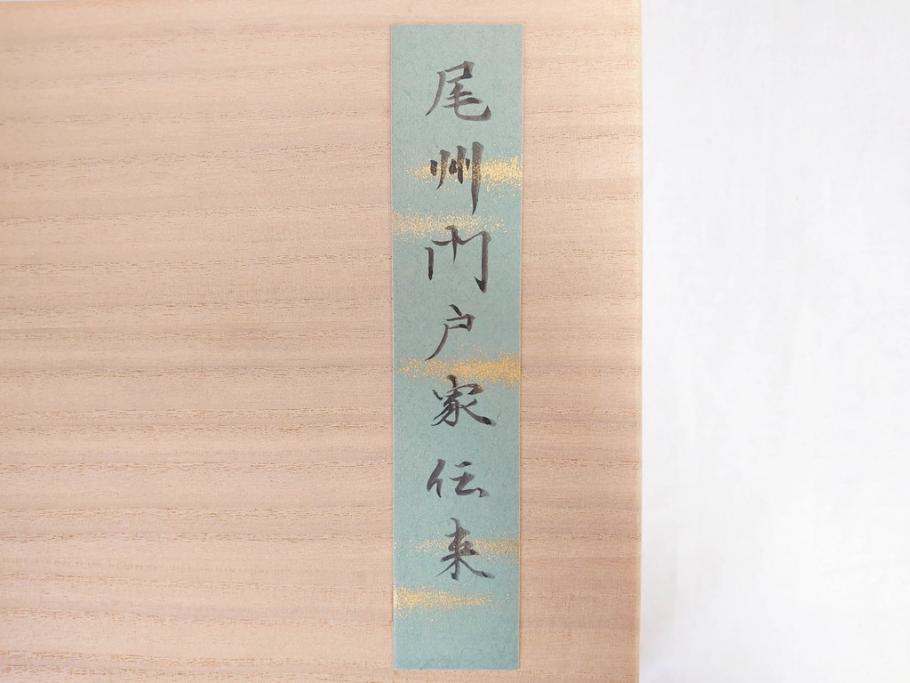 尾州門戸家伝来